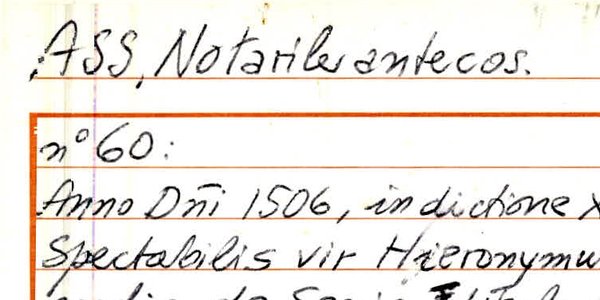 ASS, Notarile antecos.
n° 60:
Anno Dñi 1506, indictione X
Spectabilis vir Hieronymu